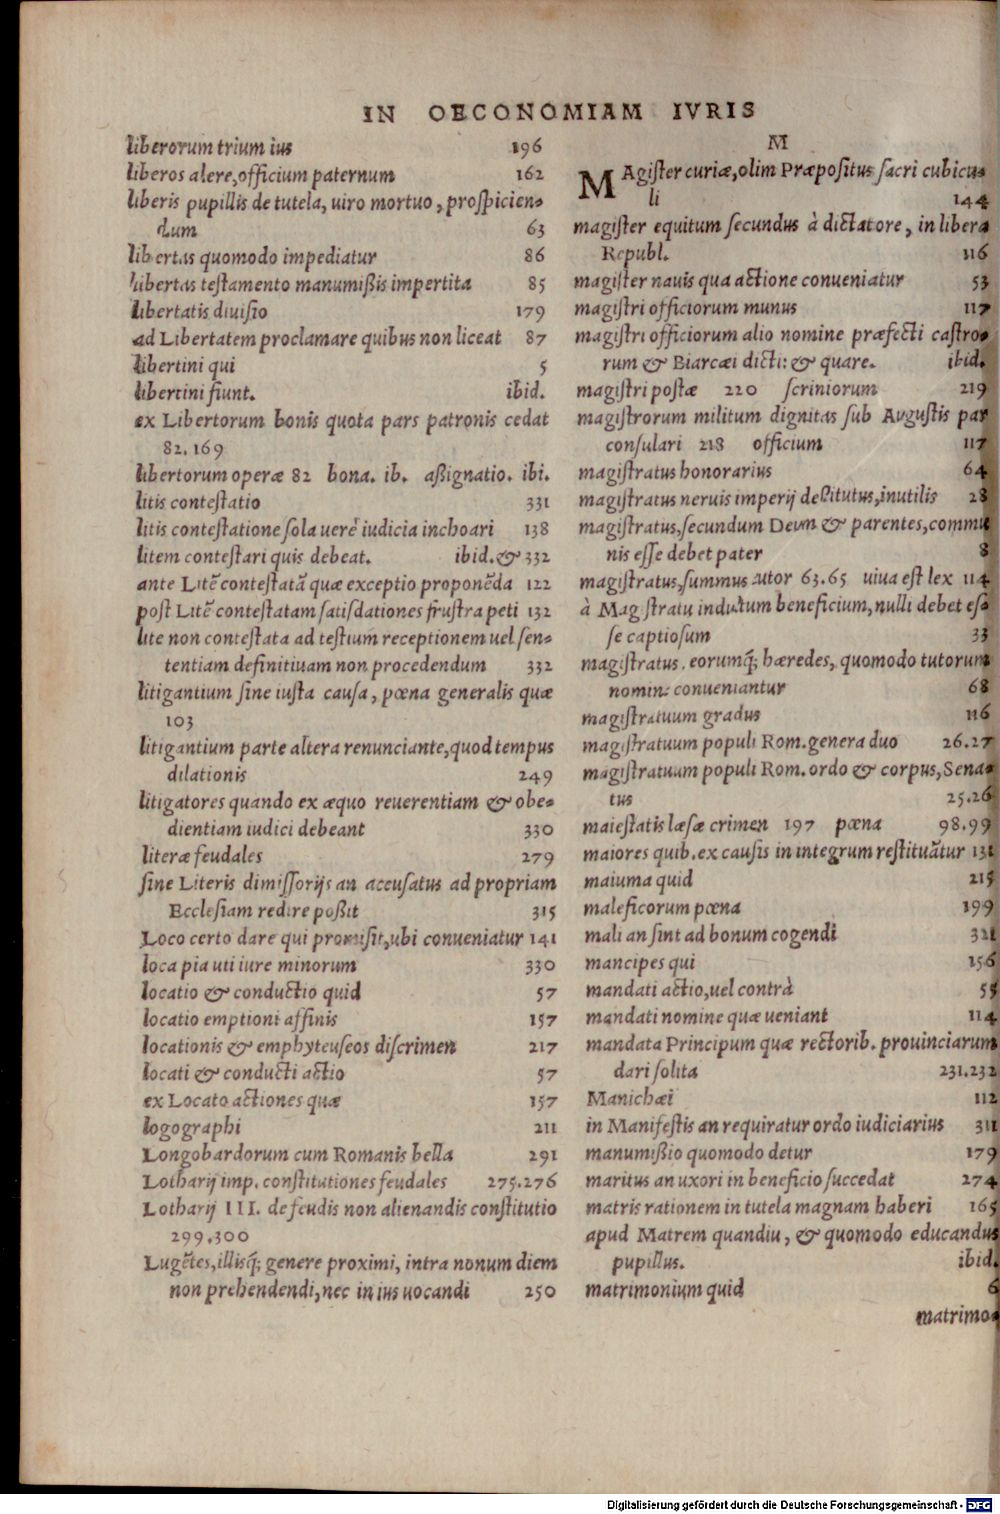 IN OECONOMIAM IVRIS
liberorum trium ius 196
liberos alere, officium paternum 162
liberis pupillis de tutela, uiro mortuo, prospicien-
dum 63
libertas quomodo impediatur 86
libertas testamento manumißis impertita 85
libertatis diuisio 179
ad Libertatem proclamare quibus non liceat 87
libertini qui 5
libertini fiunt. ibid.
ex Libertorum bonis quota pars patronis cedat
82.169
libertorum operæ 82 bona. ib. aßignatio. ibi.
litis contestatio 331
litis contestatione sola uerè iudicia inchoari 138
litem contestari quis debeat. ibid. & 332
ante Litẽ contestatã quæ exceptio proponẽda 122
post Litẽ contestatam satisdationes frustra peti 132
lite non contestata ad testium receptionem uel sen-
tentiam definitiuam non procedendum 332
litigantium sine iusta causa, pœna generalis quæ
103
litigantium parte altera renunciante, quod tempus
dilationis 249
litigatores quando ex æquo reuerentiam & obe-
dientiam iudici debeant 330
literæ feudales 279
sine Literis dimissorijs an accusatus ad propriam
Ecclesiam redire poßit 315
Loco certo dare qui promisit, ubi conueniatur 141
loca pia uti iure minorum 330
locatio & conductio quid 57
locatio emptioni affinis 157
locationis & emphyteuseos discrimen 217
locati & conducti actio 57
ex Locato actiones quæ 157
logographi 211
Longobardorum cum Romanis bella 291
Lotharij imp. constitutiones feudales 275.276
Lotharij III. de feudis non alienandis constitutio
299.300
Lugẽtes, illisq́; genere proximi, intra nonum diem
non prehendendi, nec in ius uocandi 250
M
MAgister curiæ, olim Præpositus sacri cubicu-
li 144
magister equitum secundus à dictatore, in libera
Republ. 116
magister nauis qua actione conueniatur 53
magistri officiorum munus 117
magistri officiorum alio nomine præfecti castro-
rum & Biarcæi dicti: & quare. ibid.
magistri postæ 220 scriniorum 219
magistrorum militum dignitas sub Augustis par
consulari 218 officium 117
magistratus honorarius 64
magistratus neruis imperij destitutus, inutilis 28
magistratus, secundum Deum & parentes, commu
nis esse debet pater 8
magistratus, summus tutor 63.65 uiua est lex 114
à Magistratu indultum beneficium, nulli debet es-
se captiosum 33
magistratus, eorumq́; hæredes, quomodo tutorum
nomine conueniantur 68
magistratuum gradus 116
magistratuum populi Rom. genera duo 26.27
magistratuum populi Rom. ordo & corpus, Sena-
tus 25.26
maiestatis læsæ crimen 197 pœna 98.99
maiores quib. ex causis in integrum restituãtur 131
maiuma quid 215
maleficorum pœna 199
mali an sint ad bonum cogendi 321
mancipes qui 156
mandati actio, uel contrà 55
mandati nomine quæ ueniant 114
mandata Principum quæ rectorib. prouinciarum
dari solita 231.232
Manichæi 112
in Manifestis an requiratur ordo iudiciarius 311
manumißio quomodo detur 179
maritus an uxori in beneficio succedat 274
matris rationem in tutela magnam haberi 165
apud Matrem quandiu, & quomodo educandus
pupillus. ibid.
matrimonium quid 6
matrimo-
Digitalisierung gefördert durch die Deutsche Forschungsgemeinschaft - DFG